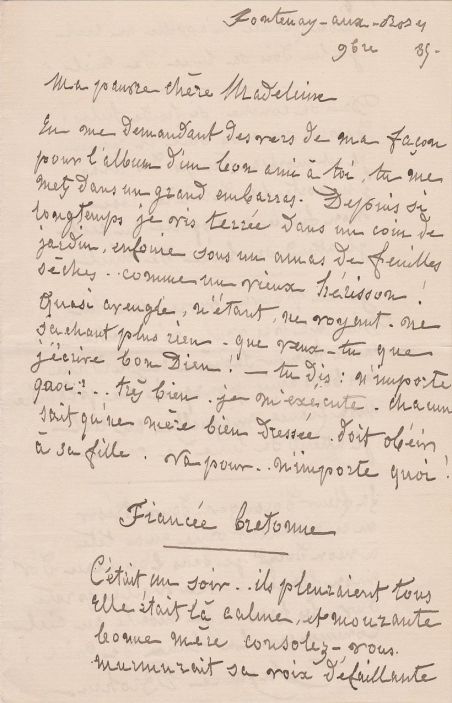 Fontenay-aux-Roses
9bre 85-
Ma pauvre chère Madeleine
En me demandant des vers de ma façon
pour l'album d'un bon ami à toi, tu me
mets dans un grand embarras. Depuis si
longtemps je vis terrée dans un coin de
jardin, enfouie sous un amas de feuilles
sèches.. comme un vieux hérisson!
Quasi aveugle, n'étant, ne voyant. ne
sachant plus rien. que veux-tu que
j'écrive bon Dieu! — tu dis: n'importe
quoi?.. très bien. je m'exécute. chacun
sait qu'une mère bien dressée. doit obéir
à sa fille. va pour.. n'importe quoi!
Fiancée bretonne
C'était un soir.. ils pleuraient tous
Elle était là calme, et mourante
bonne mère consolez-vous.
murmurait sa voix défaillante